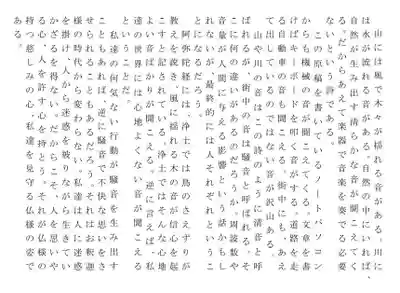 山には風で木々が揺れる音がある。川に
は水が流れる音がある。自然の中にいれば、
自然が生み出す清らかな音が聞こえてく
る。だからあえて楽器で音楽を奏でる必要
ないという詩である。
この原稿を書いているノートパソコン
からも機械の音が聞こえてくる。文章を書
けばキーボードを叩く音がする。道路を走る
自動車の音も聞こえる。街中にも、あえ
て出しているのではない音が沢山ある。
山や川の音はこの詩のように清音と呼
ばれるが、街中の音は騒音と呼ばれる。そ
こに何の違いがあるのだろうか。周波数や
音量が人間に与える影響という話かもし
れないが、最終的には人それぞれというこ
とになるだろう。
阿弥陀経には、浄土では鳥のさえずりが
教えを説き、風に揺れる木の音が信心を起
こすと記されている。浄土ではそんな心地
よい音ばかりが聞こえる。逆に言えば、私
達の世界には心地よくない音が聞こえる
という。
私達の何気ない行動が騒音を生み出す
こともあれば、逆に騒音で不快な思いをさ
せられることもあるだろう。それはお釈迦
様の時代から変わらない。私達は人に迷惑
を掛け、人から迷惑を被りながら生きてい
かざるを得ない。だからこそ、人を思いや
る心、人を許す心を持とう。それが仏様の
持つ慈しみの心、私達を見守る仏様の姿で
ある。